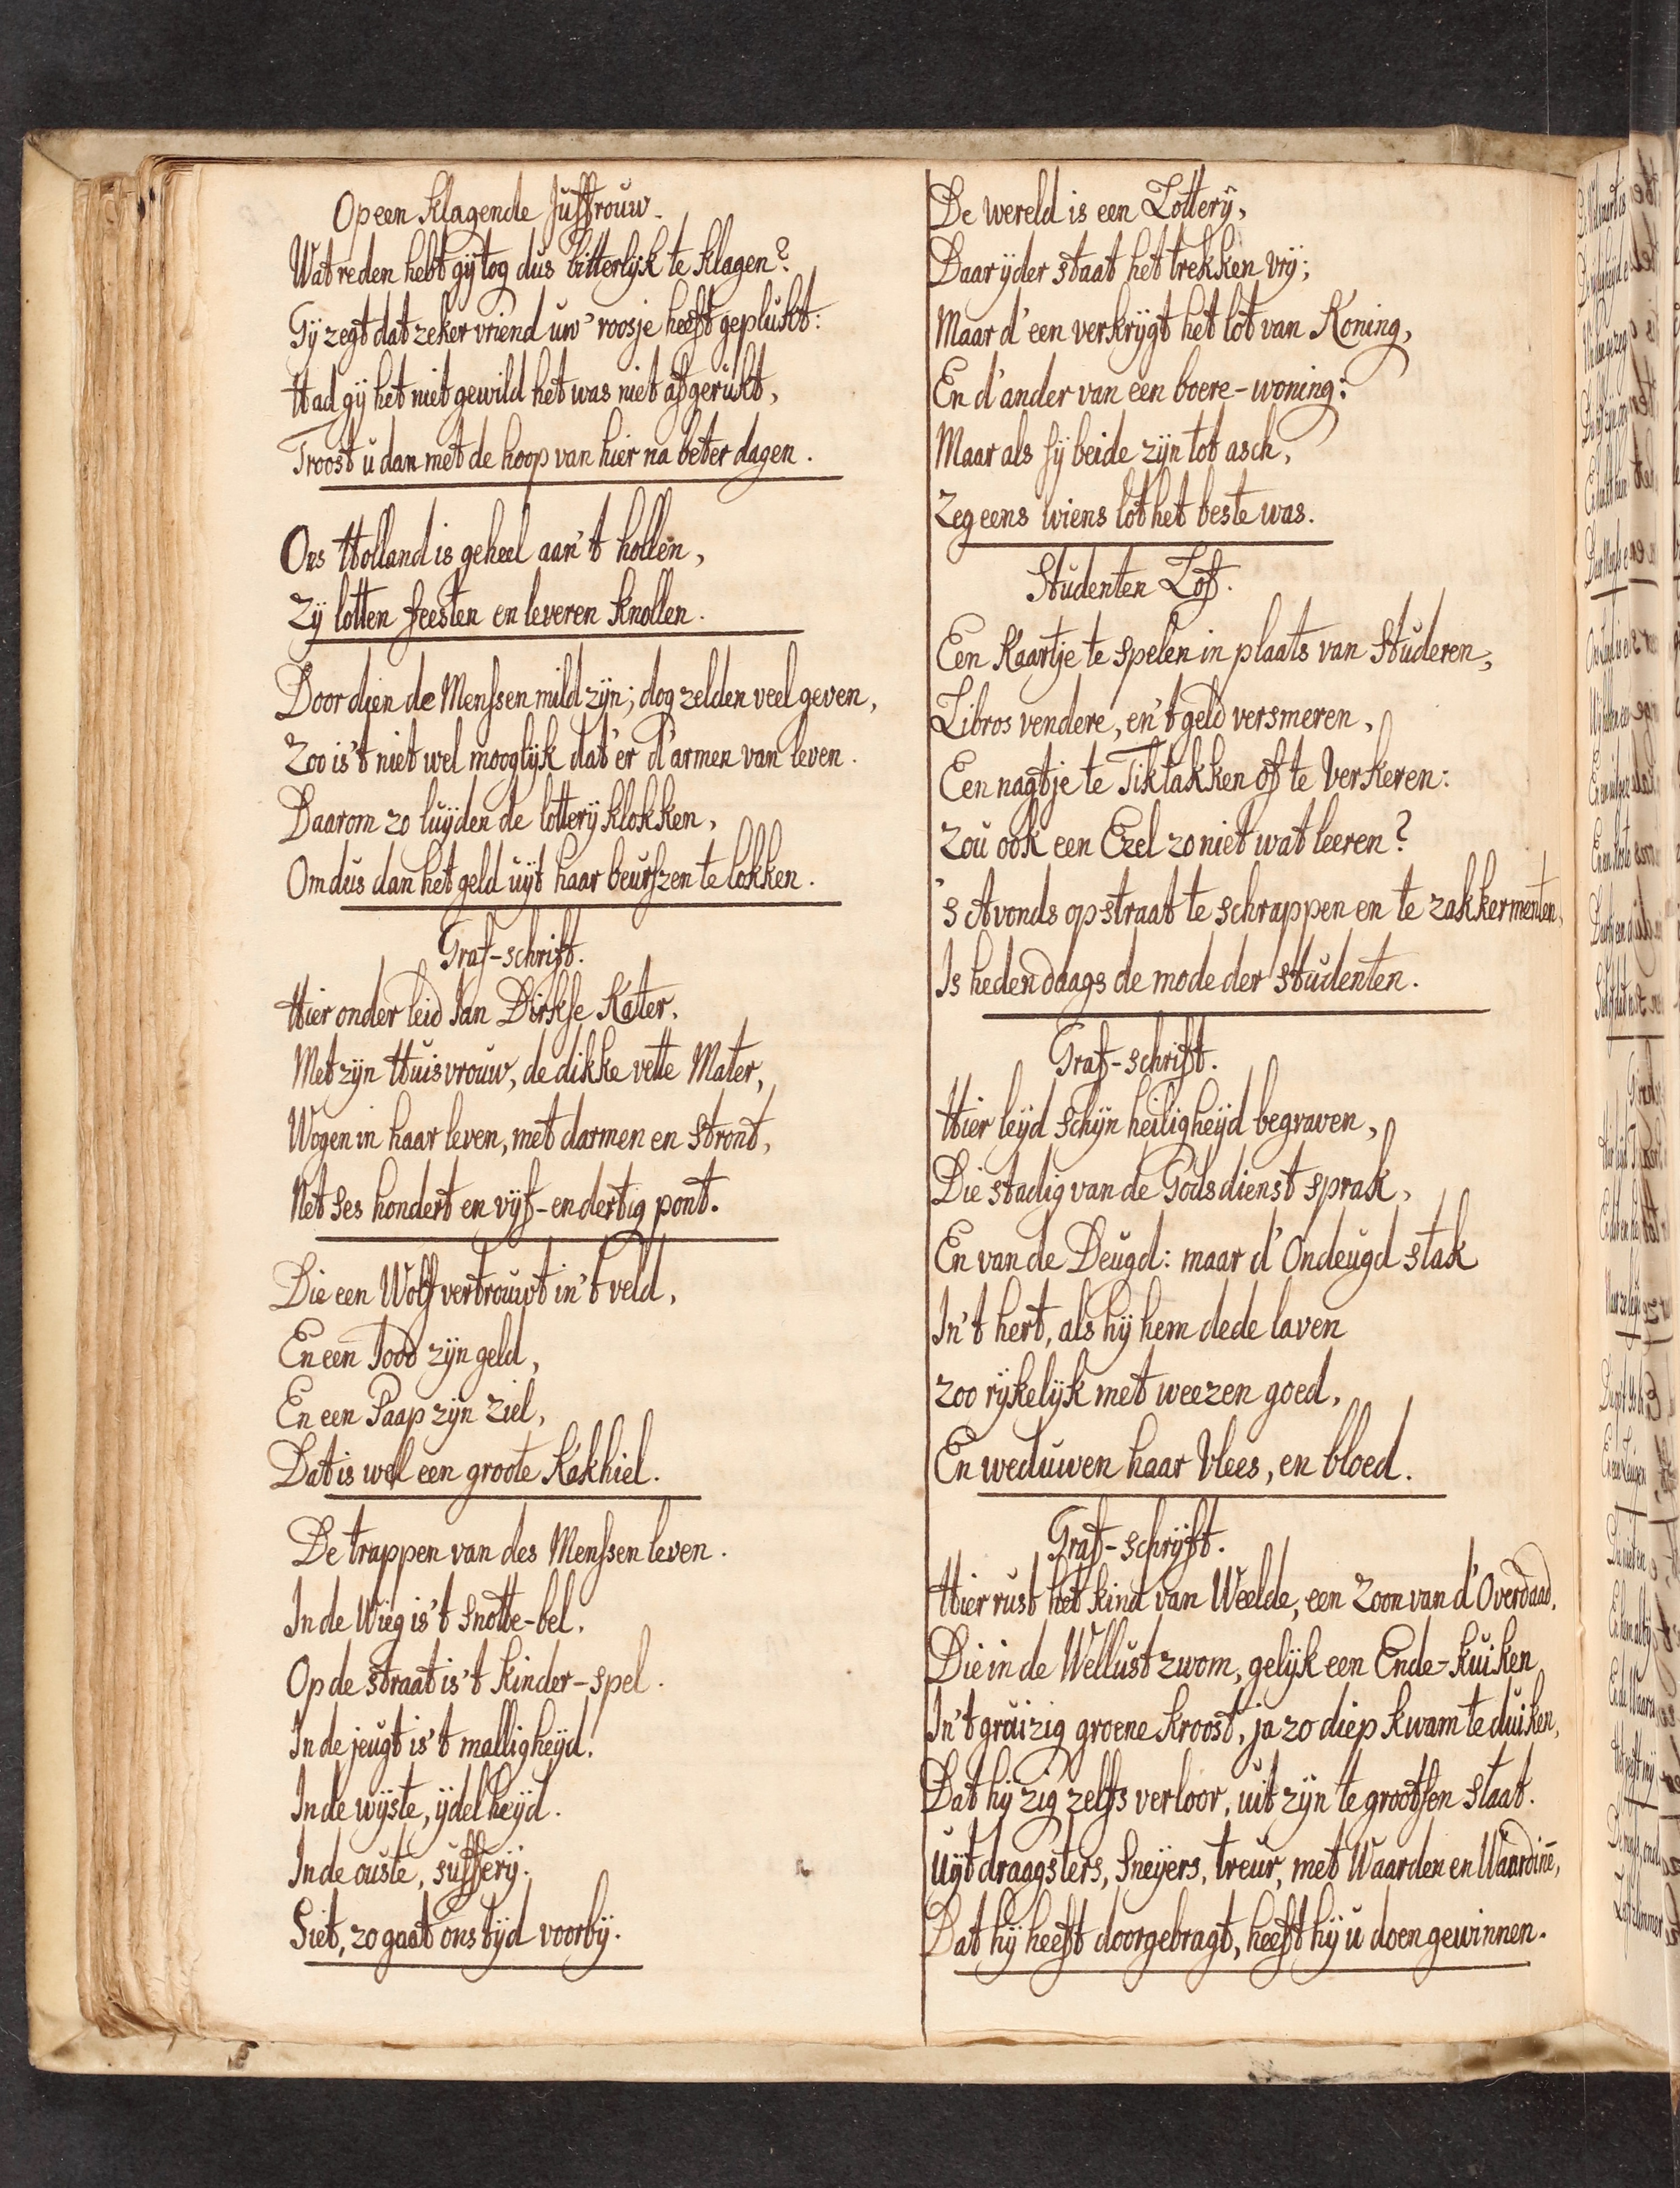 Op een klagende Juffrouw.
Wat reden hebt gij tog dus bitterlijk te klagen?
Gij zegt dat zeker vriend uw' roosje heeft geplukt:
Had gij het niet gewild het was niet afgerukt,
Troost u dan met de hoop van hier na beter dagen.
Ons Holland is geheel aan't hollen,
Zij lotten feesten en leveren knollen.
Door dien de Menssen mild zijn; dog zelden veel geven,
Zoo is't niet wel mooglijk dat'er d'armen van leven.
Daarom zo luijden de lotterij klokken,
Om dus dan het geld uijt haar beurszen te lokken.
Graf-schrift.
Hier onder leid Jan Dirkse Kater,
Met zijn Huisvrouw, de dikke vette Mater,
Wogen in haar leven, met darmen en stront,
Net ses hondert en vijf-en dertig pont.
Die een Wolf vertrouwt in't veld,
En een Jood zijn geld,
En een Paap zijn ziel,
Dat is wel een groote Kakhiel.
De trappen van des Menssen leven.
In de Wieg is't snotte-bel,
Op de straat is't kinder-spel.
In de jeugt is't malligheijd.
In de wijste, ijdelheijd.
In de ouste, sufferij.
Siet, zo gaat ons tijd voorbij.
De wereld is een Lotterij,
Daar ijder staat het trekken vrij;
Maar d'een verkrijgt het lot van Koning,
En d'ander van een boere-woning:
Maar als sij beide zijn tot asch,
Zeg eens wiens lot het beste was.
Studenten Lof.
Een Kaartje te spelen in plaats van studeren,
Libros vendere, en't geld versmeren,
Een nagtje te Tiktakken of te Verkeren:
Zou ook een Ezel zo niet wat leeren?
's Avonds op straat te schrappen en te zakkermenten,
Is hedendaags de mode der studenten.
Graf-schrift.
Hier leijd schijn heiligheijd begraven,
Die stadig van de Godsdienst sprak,
En van de Deugd: maar d'Ondeugd stak
In't hert, als hij hem dede laven
zoo rijkelijk met weezen goed,
En weduwen haar Vlees, en bloed.
Graf-schrijft.
Hier rust het kind van Weelde, een Zoon van d'Overdaad,
Die in de Wellust zwom, gelijk een Ende-kuiken
In't gruizig groene kroost, ja zo diep kwam te duiken,
Dat hij zig zelfs verloor, uit zijn te grootsen staat.
Uijtdraagsters, Sneijers, treur, met Waarden en Waardinē,
Dat hij heeft doorgebragt, heeft hij u doen gewinnen.